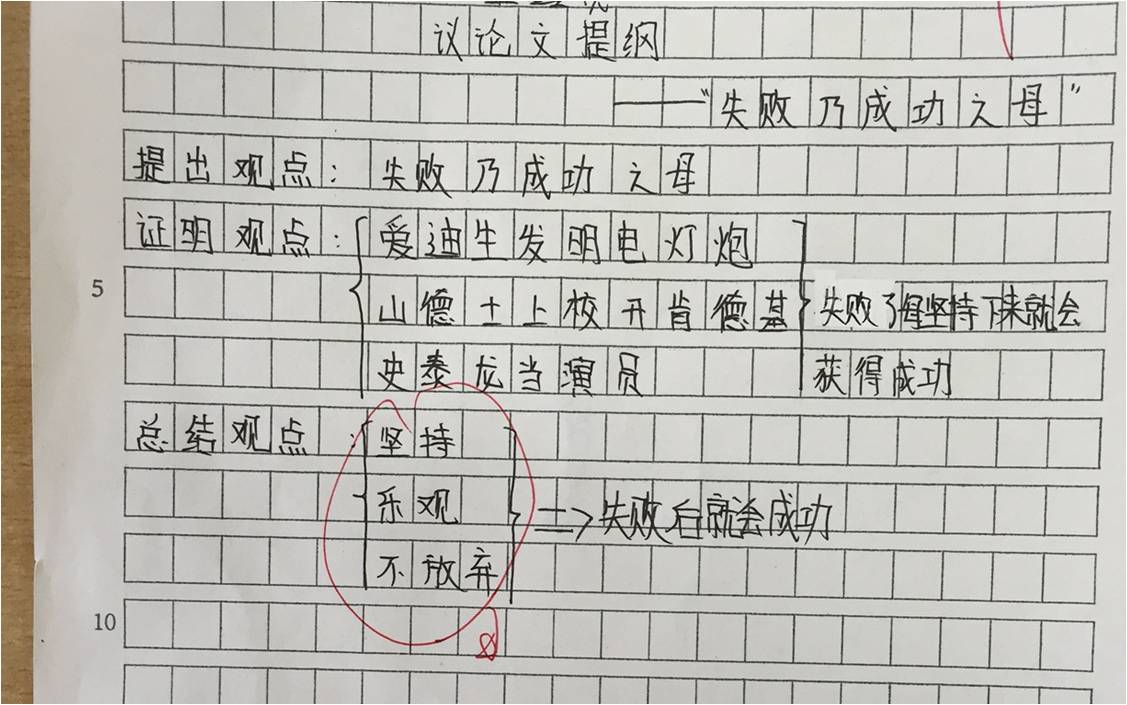 议论文提纲
——“失败乃成功之母”
提出观点：失败乃成功之母
证明观点：爱迪生发明电灯炮
5 山德士上校开肯德基 失败了但坚持下来就会
史泰龙当演员 获得成功
总结观点：坚持
乐观 => 失败后就会成功
不放弃
10